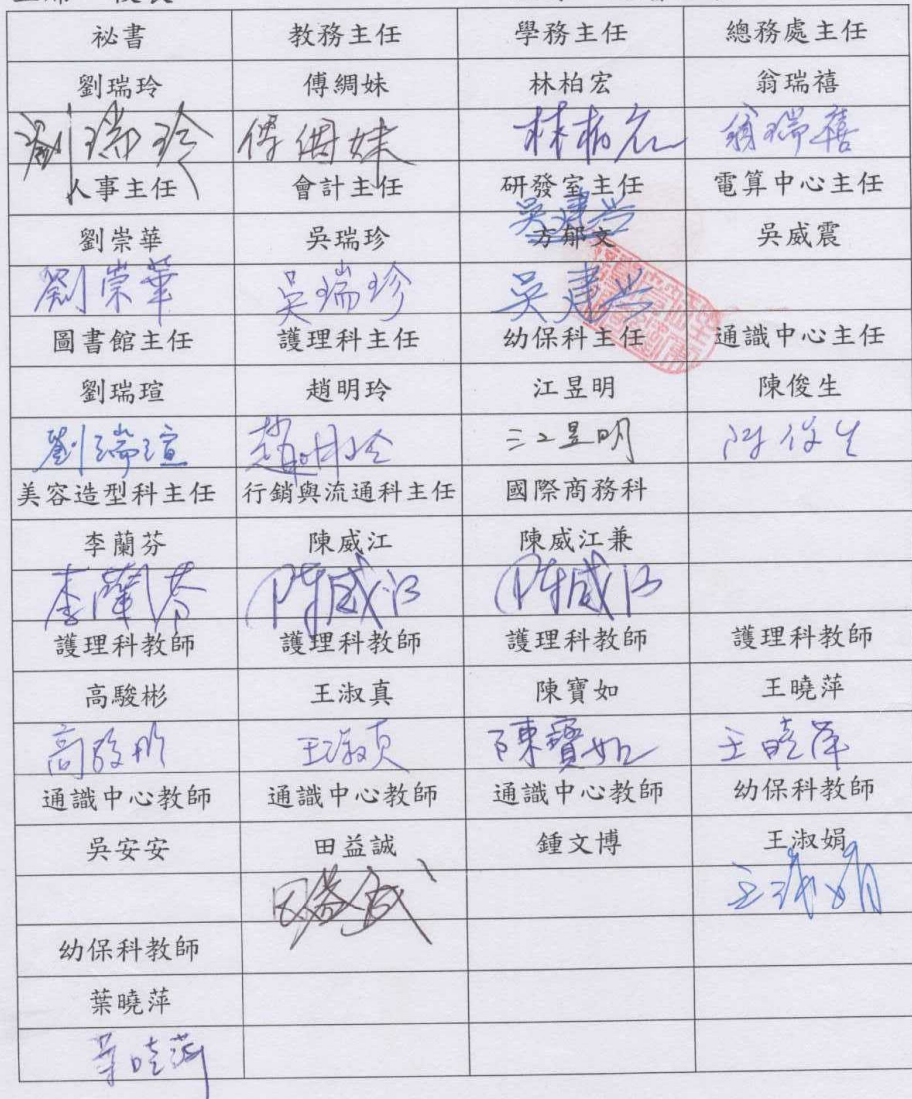 祕書 教務主任 學務主任 總務處主任
劉瑞玲 傅綢妹 林柏宏 翁瑞禧
劉瑞玲 傅綢妹 林柏宏 翁瑞禧
人事主任 會計主任 研發室主任 電算中心主任
吳建興
劉崇華 吳瑞珍 方郁文 吳威震
劉崇華 吳瑞珍 吳建興
圖書館主任 護理科主任 幼保科主任 通識中心主任
劉瑞瑄 趙明玲 江昱明 陳俊生
劉瑞瑄 趙明玲 江昱明 陳俊生
美容造型科主任 行銷與流通科主任 國際商務科
李蘭芬 陳威江 陳威江兼
李蘭芬 陳威江 陳威江
護理科教師 護理科教師 護理科教師 護理科教師
高駿彬 王淑真 陳寶如 王曉萍
高駿彬 王淑真 陳寶如 王曉萍
通識中心教師 通識中心教師 通識中心教師 幼保科教師
吳安安 田益誠 鍾文博 王淑娟
田益誠 王淑娟
幼保科教師
葉曉萍
葉曉萍